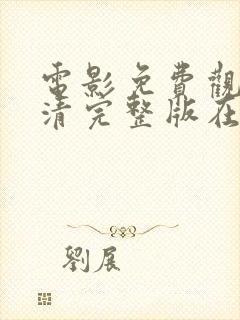 電影免費觀
清完整版在
劉展